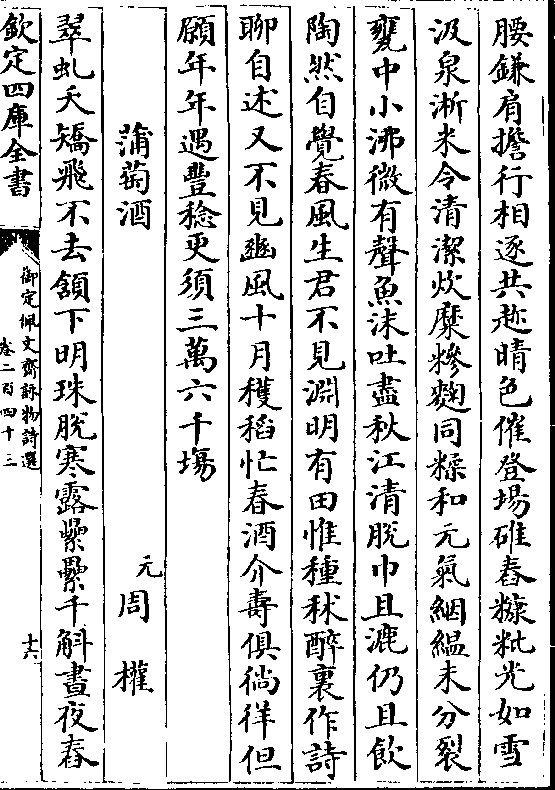 腰鎌肩擔行相逐共趂晴色催登場碓舂糠粃光如雪
汲泉淅米令清潔炊糜糝麴同糅和元氣絪縕未分裂
甕中小沸微有聲魚沫吐盡秋江清脫巾且漉仍且飲
陶然自覺春風生君不見淵明有田惟種秫醉裏作詩
聊自述又不見豳風十月穫稻忙春酒介壽俱徜徉但
願年年遇豐稔更須三萬六千塲
蒲萄酒
元周權
翠虬夭矯飛不去頷下明珠脫寒露纍纍千斛晝夜舂
欽定四庫全書
御定佩文齋詠物詩選
卷二百四十三
十六